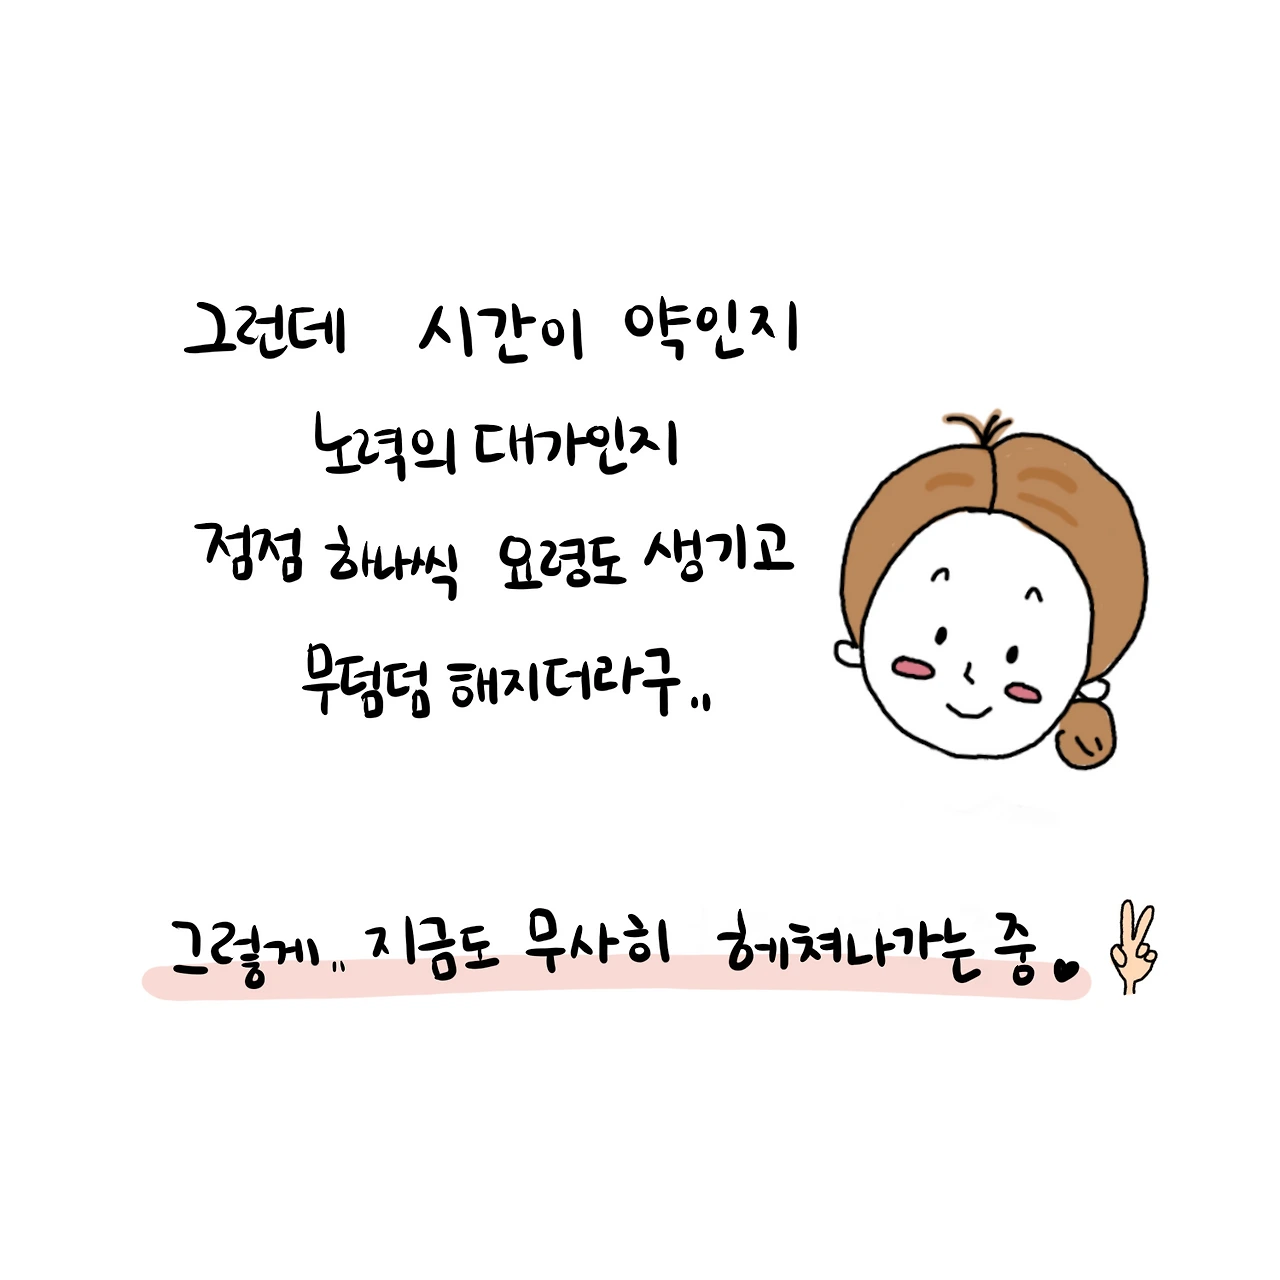 그런데 시간이 약인지
노력의 대가인지
점점 하나씩 요령도 생기고
무덤덤 해지더라구..
그렇게.. 지금도 무사히 헤쳐나가는 중♥